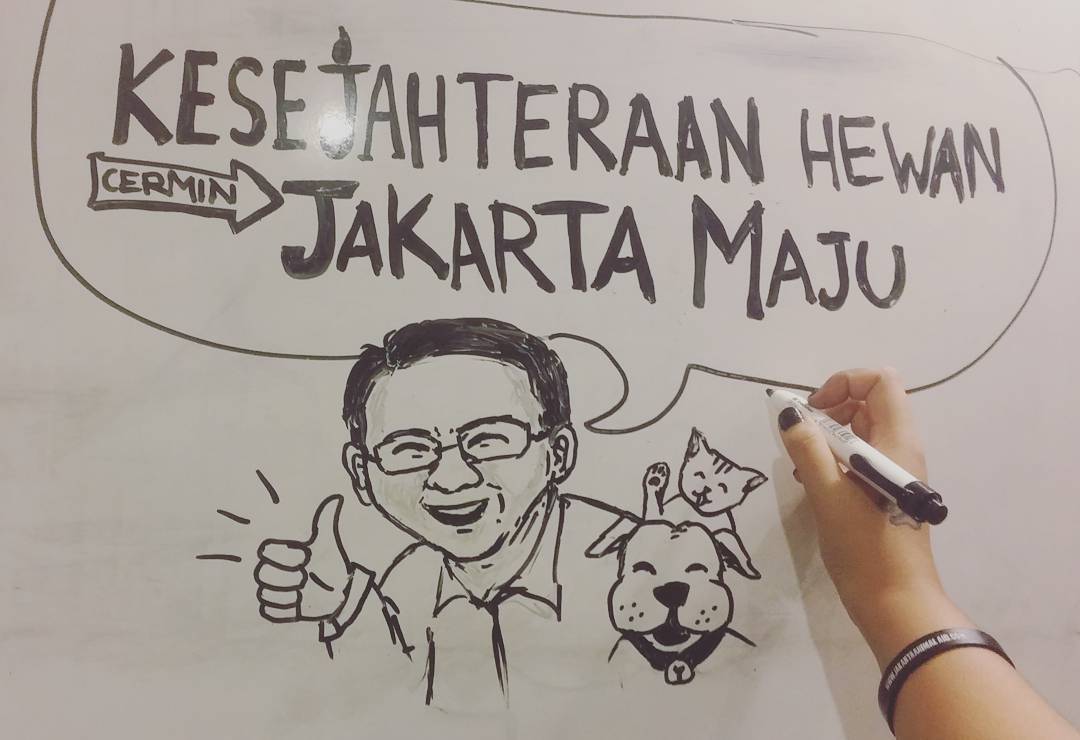 KESEJAHTERAAN HEWAN
CERMIN
JAKARTA MAJU
WWW.JAKARTAANIMALAID.COM